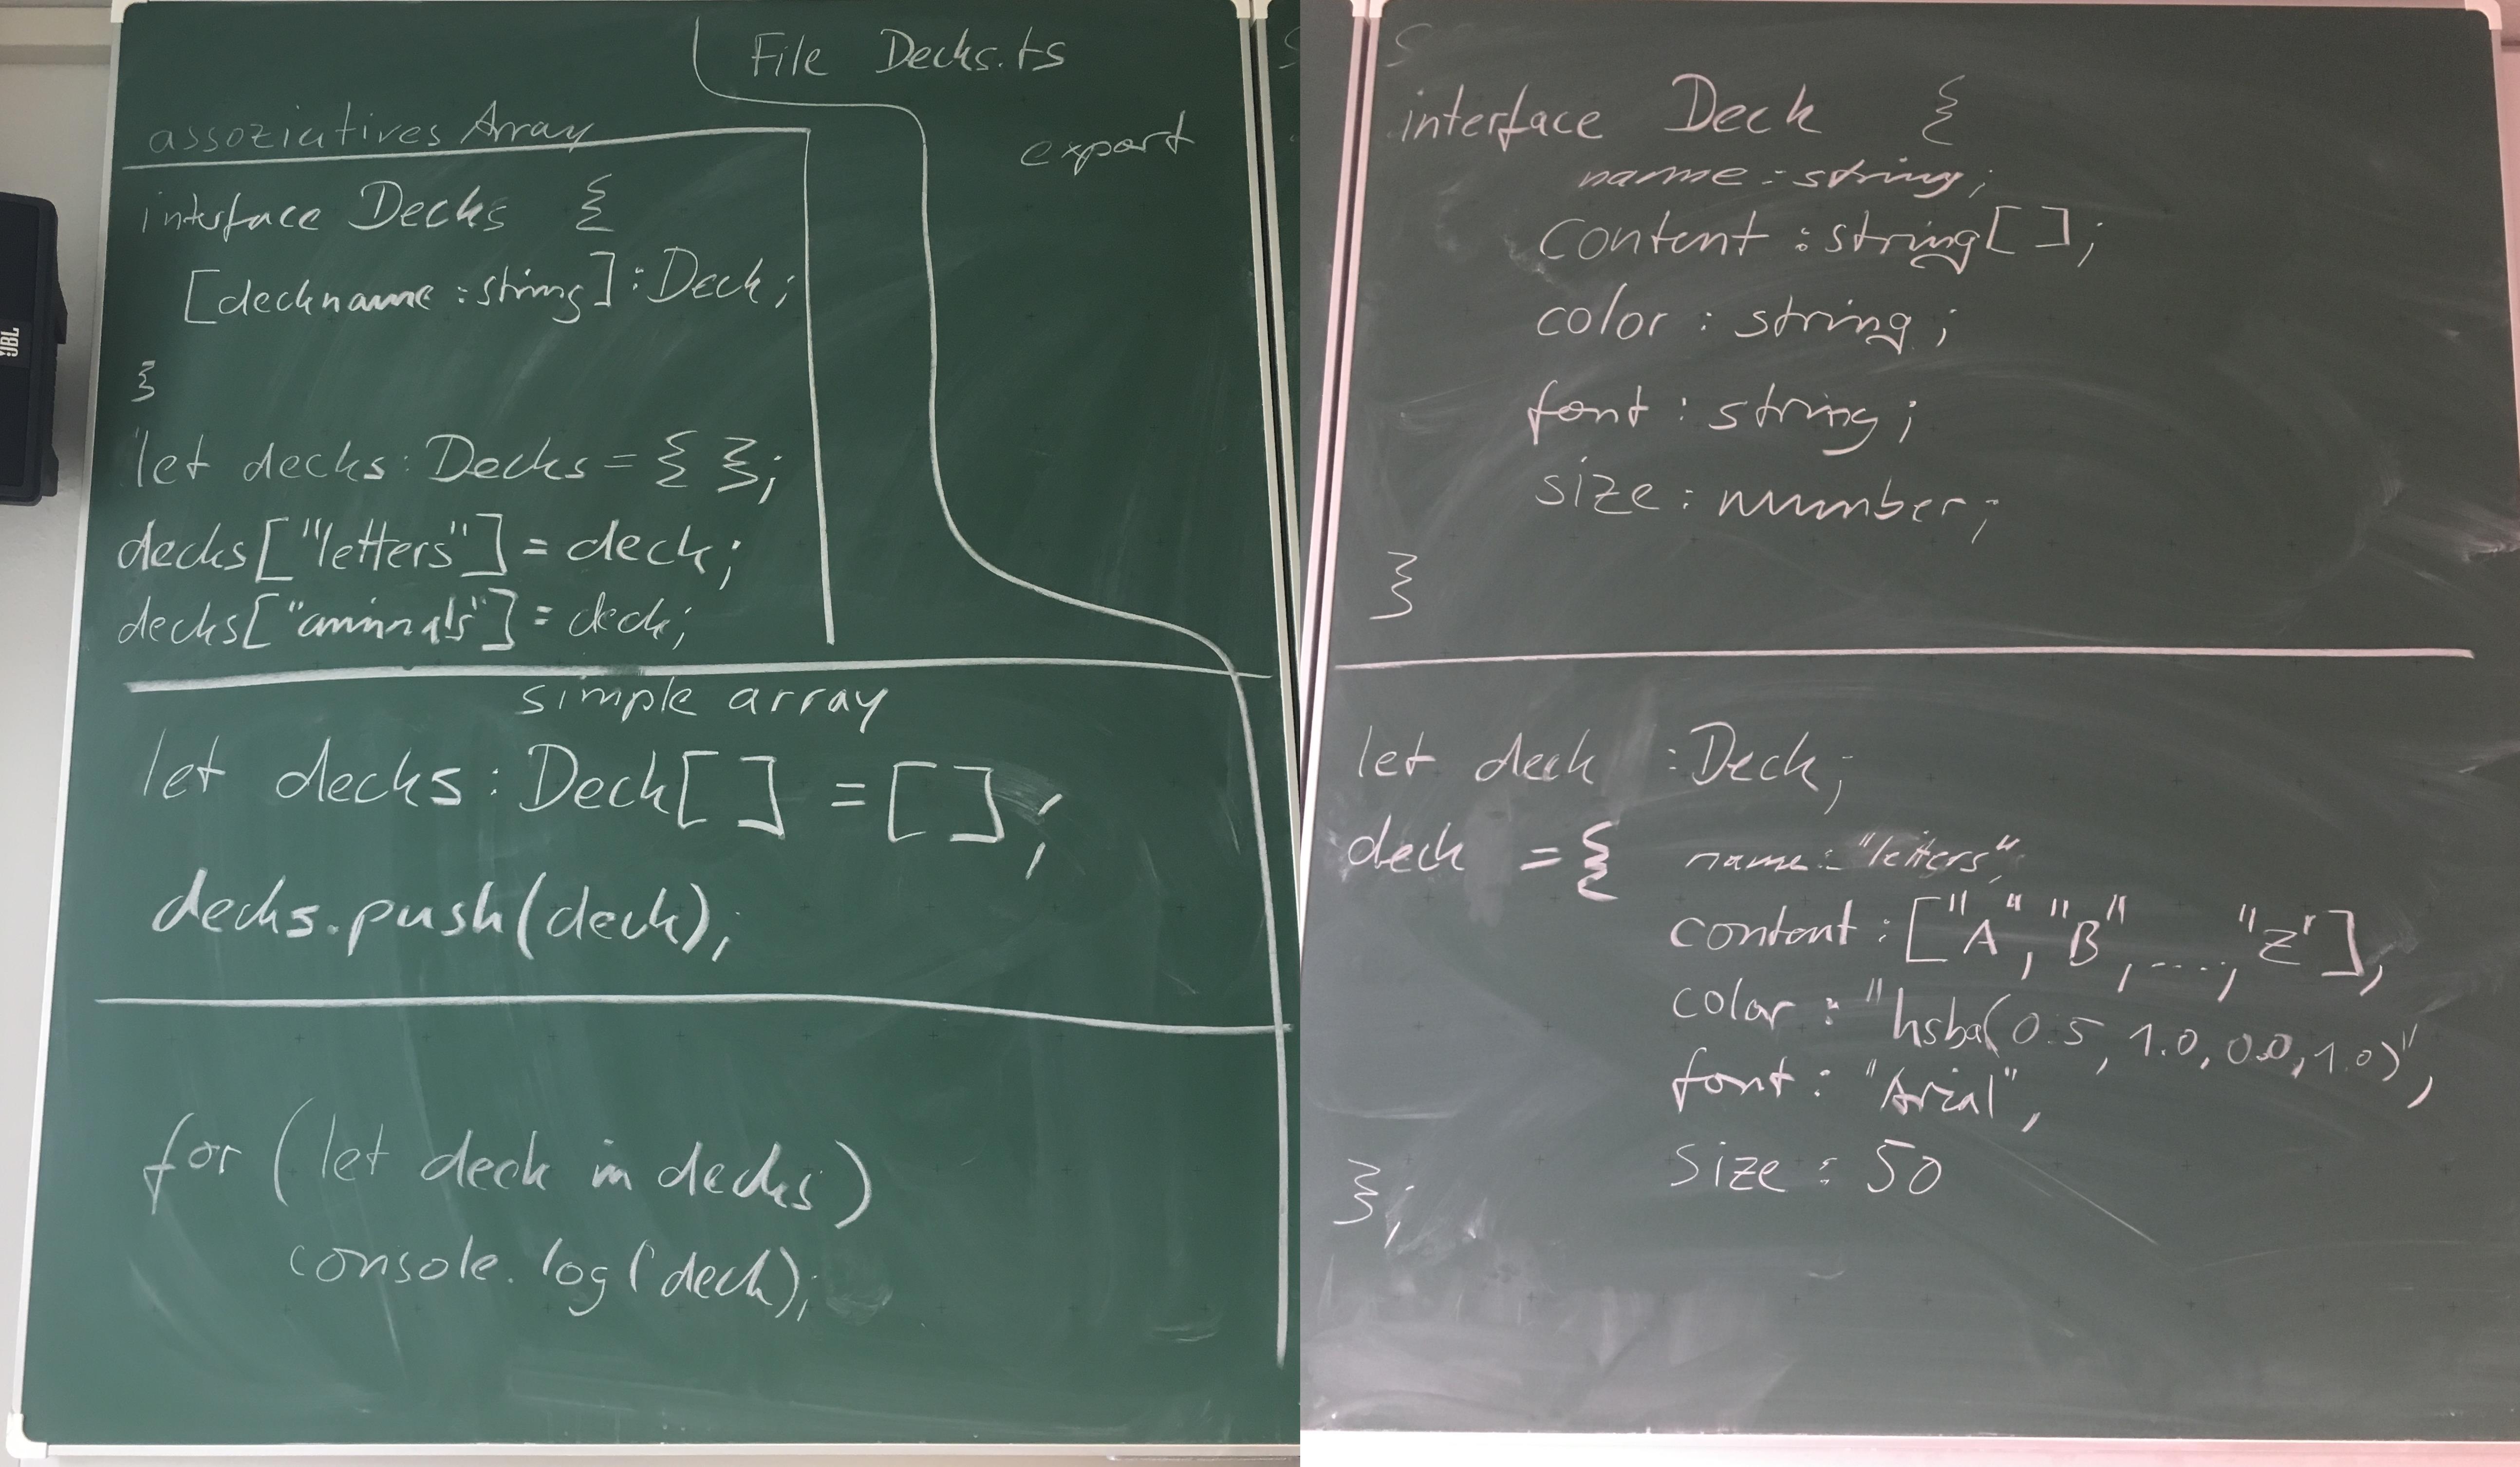 File Decks.ts
export
assoziatives Array
interface Decks {
[deckname : string] : Deck;
}
let decks : Decks = { };
decks["letters"] = deck;
decks["animals"] = deck;
simple array
let decks : Deck[ ] = [ ];
decks.push(deck);
for (let deck in decks)
console.log(deck);
JBL
interface Deck {
name : string;
content : string[ ];
color : string;
font : string;
size : number;
}
let deck : Deck;
deck = { name : "letters",
content : ["A", "B", ...., "Z"],
color : "hsba(0.5, 1.0, 0.0, 1.0)",
font : "Arial",
size : 50
};